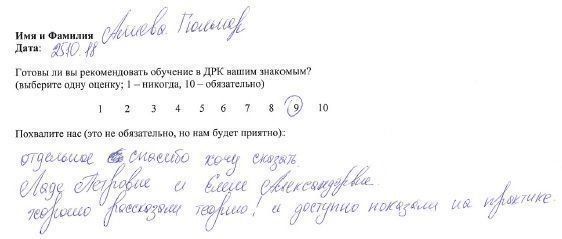 Имя и Фамилия Алиева Гюльнар
Дата: 25.10.18
Готовы ли вы рекомендовать обучение в ДРК вашим знакомым?
(выберите одну оценку; 1 – никогда, 10 – обязательно)
1 2 3 4 5 6 7 8 9 10
Похвалите нас (это не обязательно, но нам будет приятно):
отдельное спасибо хочу сказать
Ладе Петровне и Елене Александровне.
хорошо рассказали теорию! и доступно показали на практике.